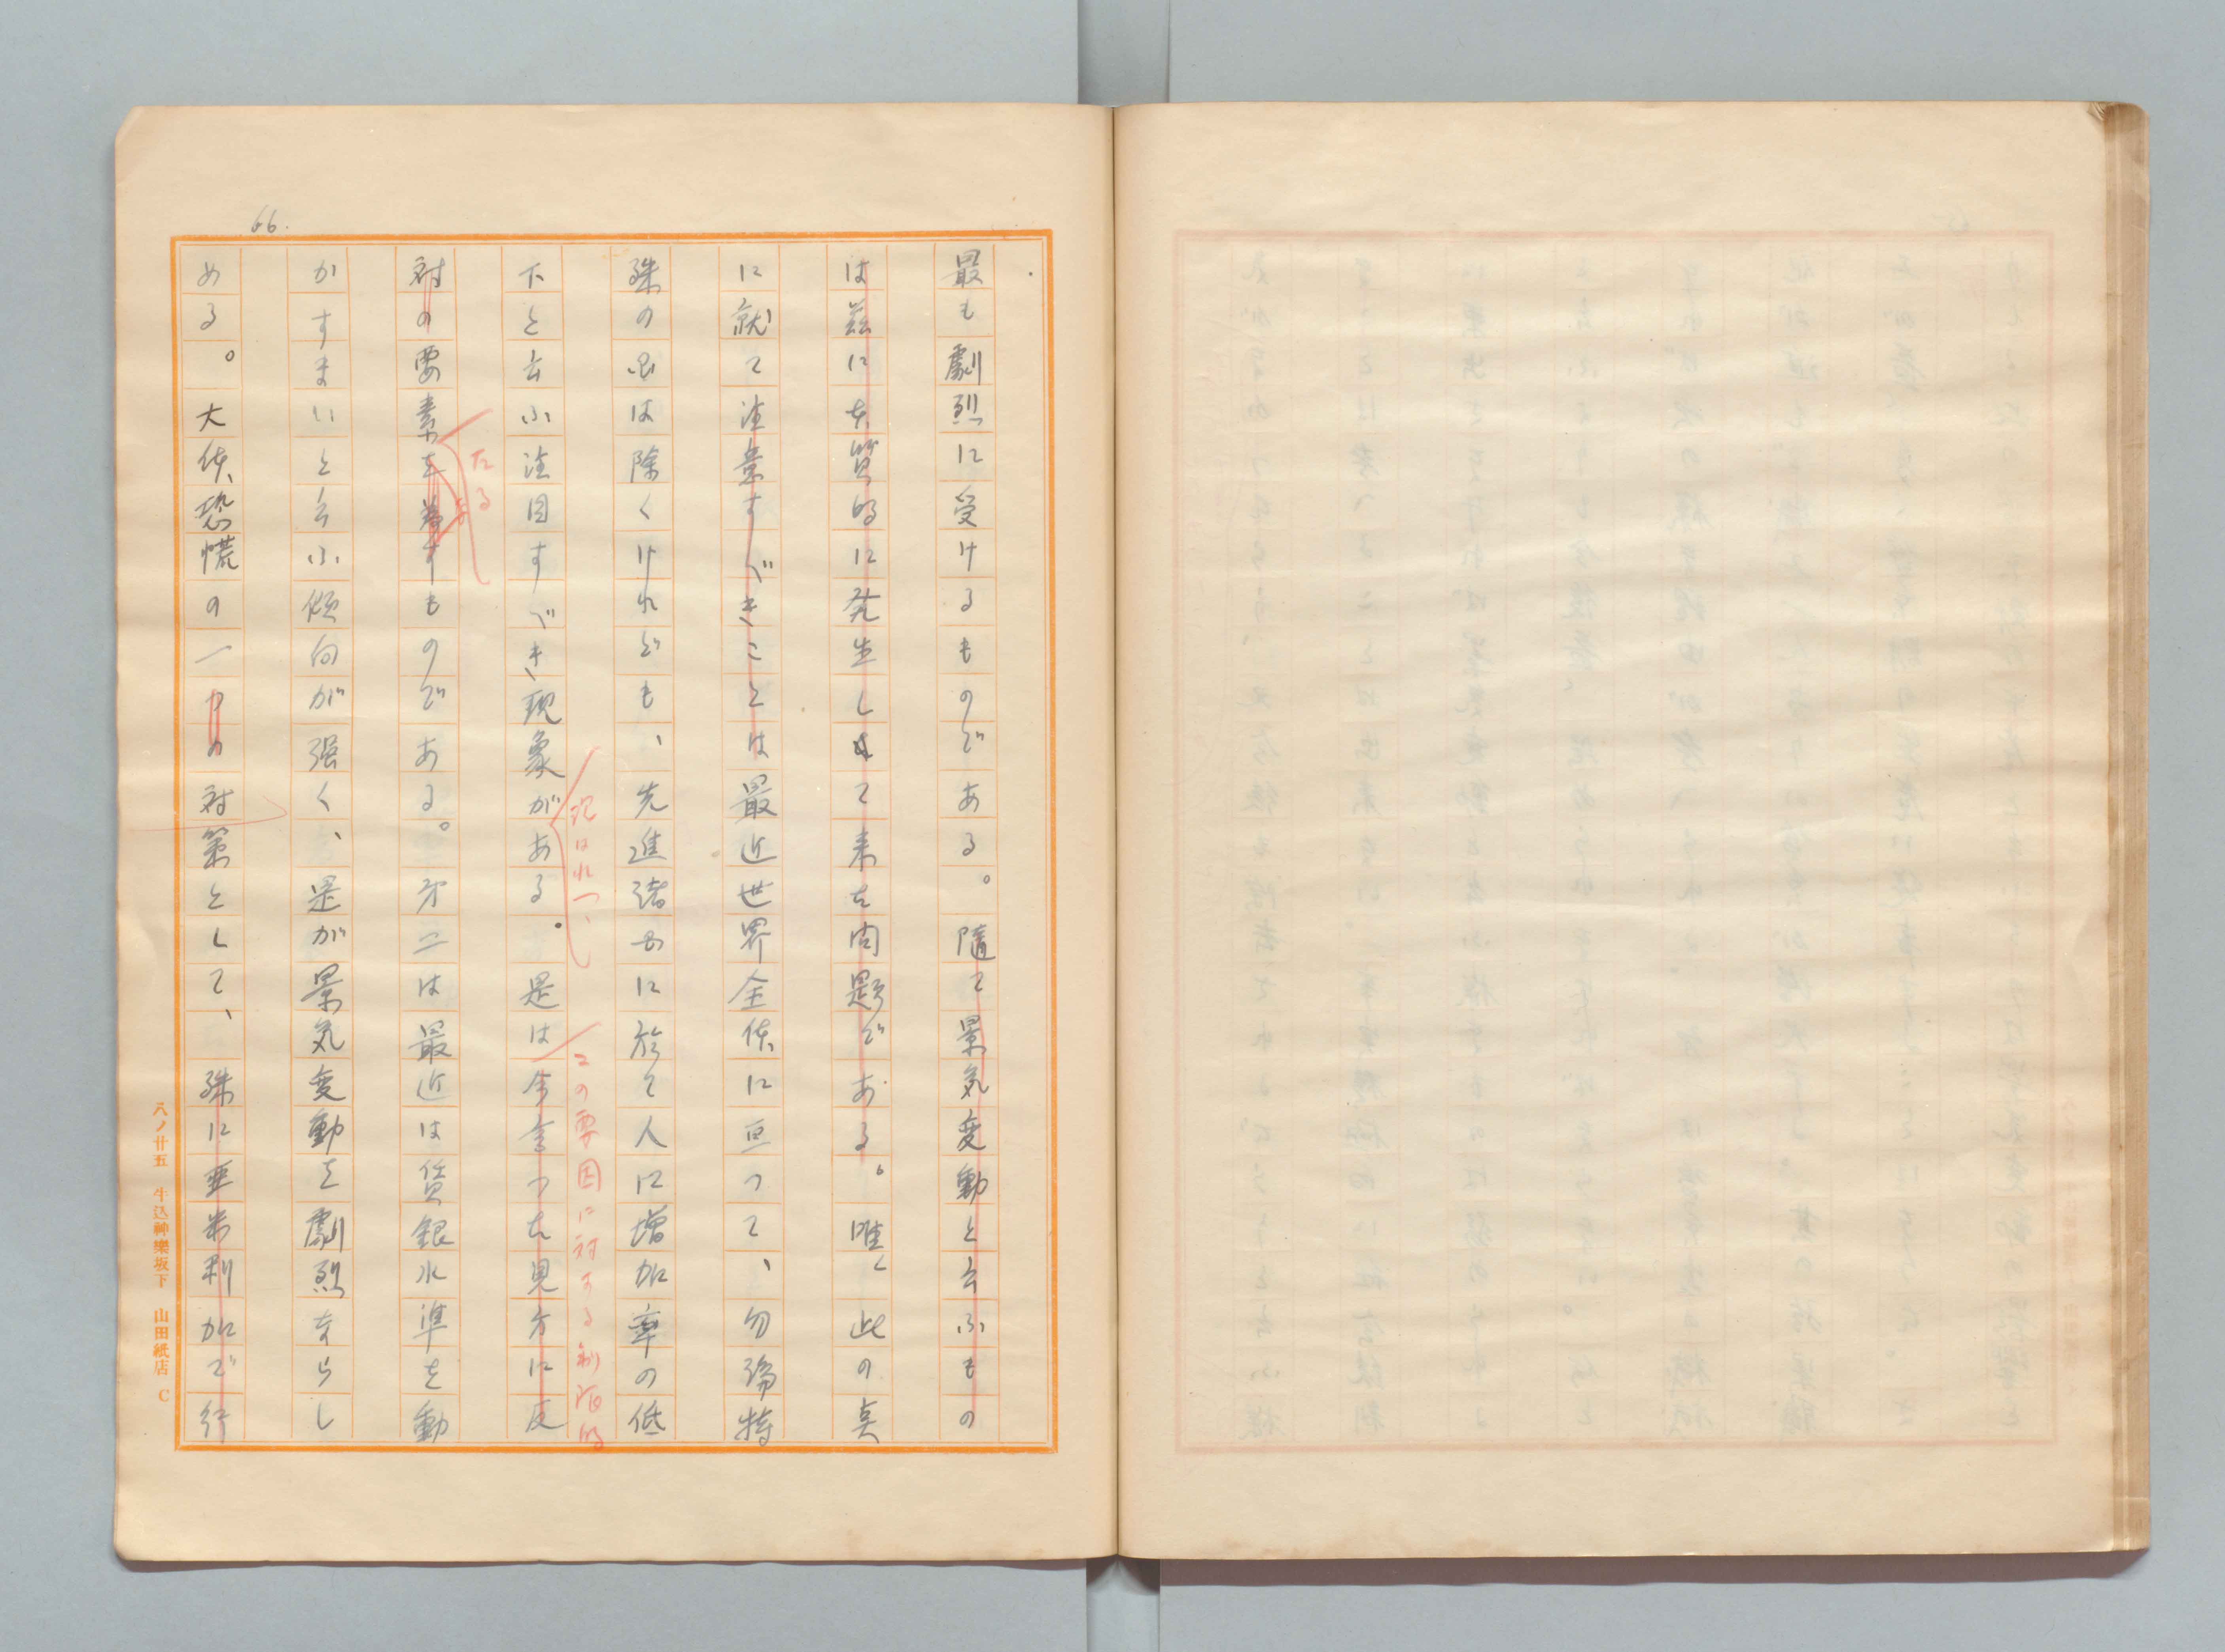 66.
最も劇烈に受けるものである。隨て景気変動と云ふもの
は茲に本質的に発生して来た問題である。唯、此の点
に就て注意すべきことは最近世界全体に亘つて、勿論特
殊の国は除くけれども、先進諸国に於て人口増加率の低
下と云ふ注目すべき現象がある。是は今言つた見方に反
現はれつゝ
この要因に対する制限的
対の要素を為すものである。才二は最近は賃銀水準を動
たる
かすまいと云ふ傾向が強く、是が景気変動を劇烈ならし
める。大体恐慌の一つの対策として、殊に亜米利加で行
八ノ廿五 牛込神樂坂下 山田紙店 C